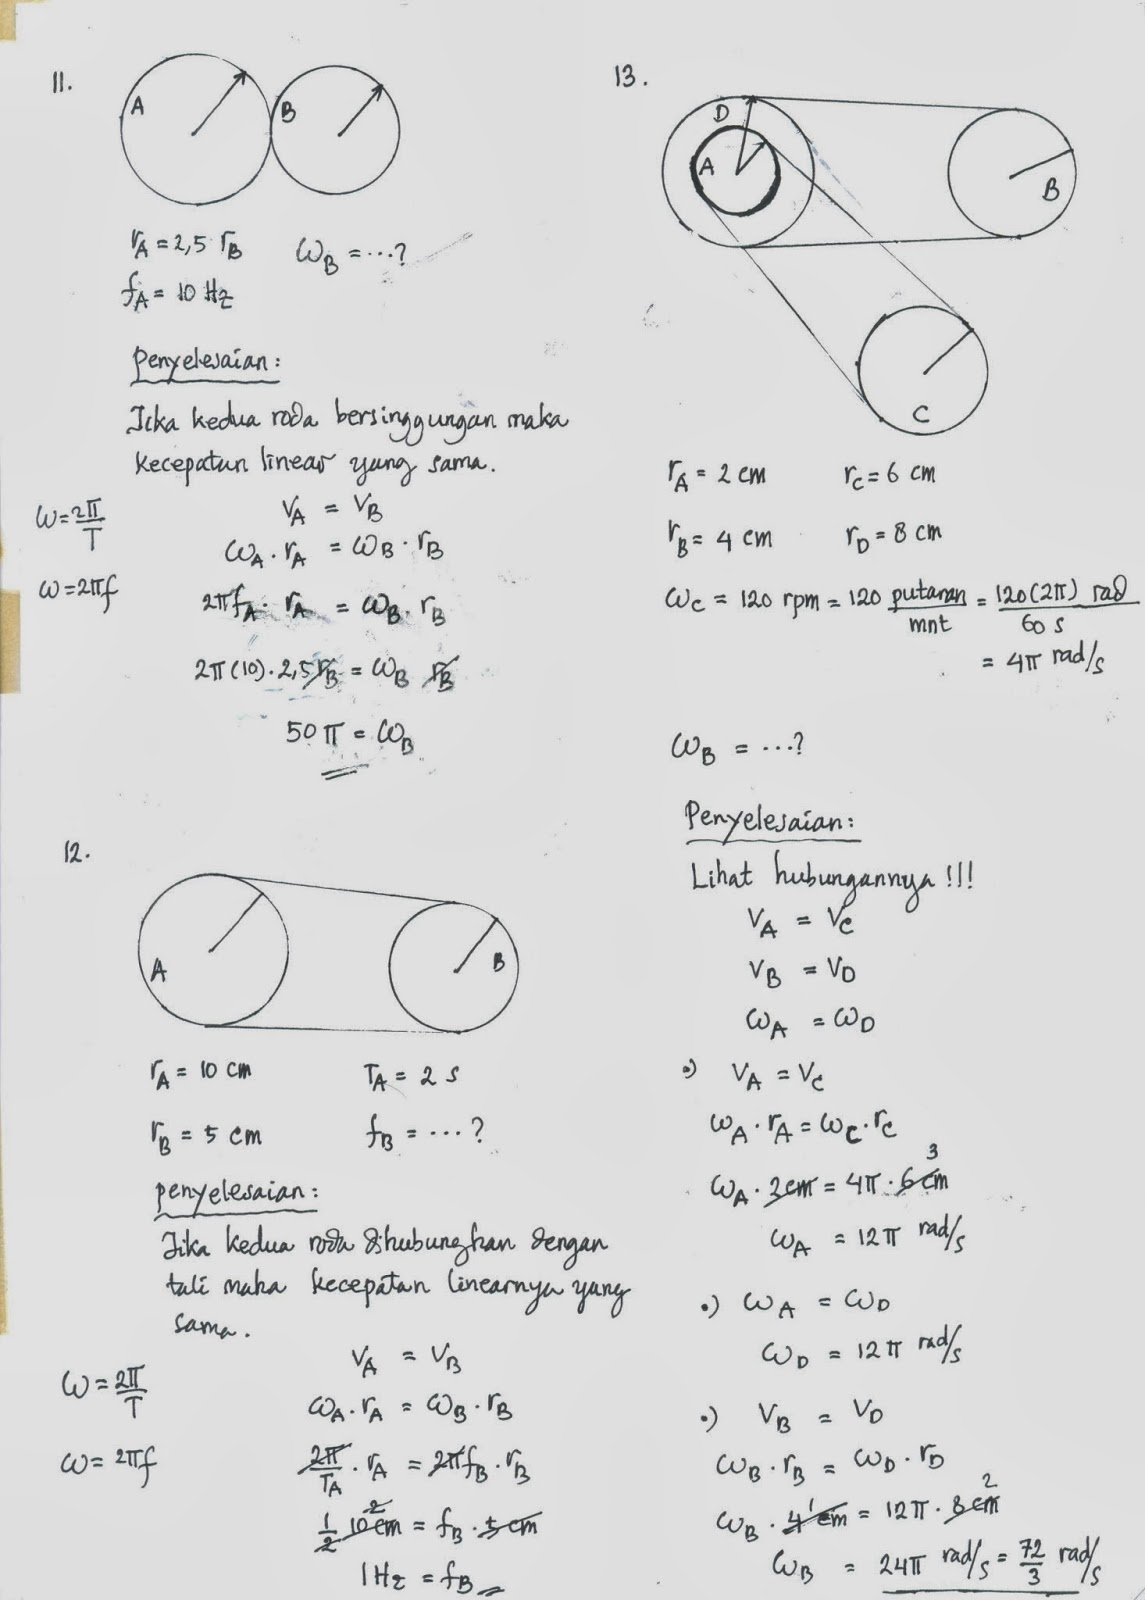 11.
A
B
r_A = 2,5 r_B   ω_B = ...?
f_A = 10 Hz
Penyelesaian:
Jika kedua roda bersinggungan maka
kecepatan linear yang sama.
ω = 2π/T
ω = 2πf
V_A = V_B
ω_A . r_A = ω_B . r_B
2πf_A . r_A = ω_B . r_B
2π(10) . 2,5 r_B = ω_B r_B
50 π = ω_B
12.
A
B
r_A = 10 cm   T_A = 2 s
r_B = 5 cm   f_B = ...?
penyelesaian:
Jika kedua roda dihubungkan dengan
tali maka kecepatan linearnya yang
sama.
ω = 2π/T
ω = 2πf
V_A = V_B
ω_A . r_A = ω_B . r_B
2π/T_A . r_A = 2πf_B . r_B
1/2 10 cm 2 = f_B . 5 cm
1 Hz = f_B
13.
D
A
B
C
r_A = 2 cm   r_C = 6 cm
r_B = 4 cm   r_D = 8 cm
ω_C = 120 rpm = 120 putaran/mnt = 120(2π) rad/60 s
= 4π rad/s
ω_B = ...?
Penyelesaian:
Lihat hubungannya!!!
V_A = V_C
V_B = V_D
ω_A = ω_D
•) V_A = V_C
ω_A . r_A = ω_C . r_C
ω_A . 2 cm = 4π . 6 cm 3
ω_A = 12π rad/s
•) ω_A = ω_D
ω_D = 12π rad/s
•) V_B = V_D
ω_B . r_B = ω_D . r_D
ω_B . 4 cm 1 = 12π . 8 cm 2
ω_B = 24π rad/s = 72/3 rad/s